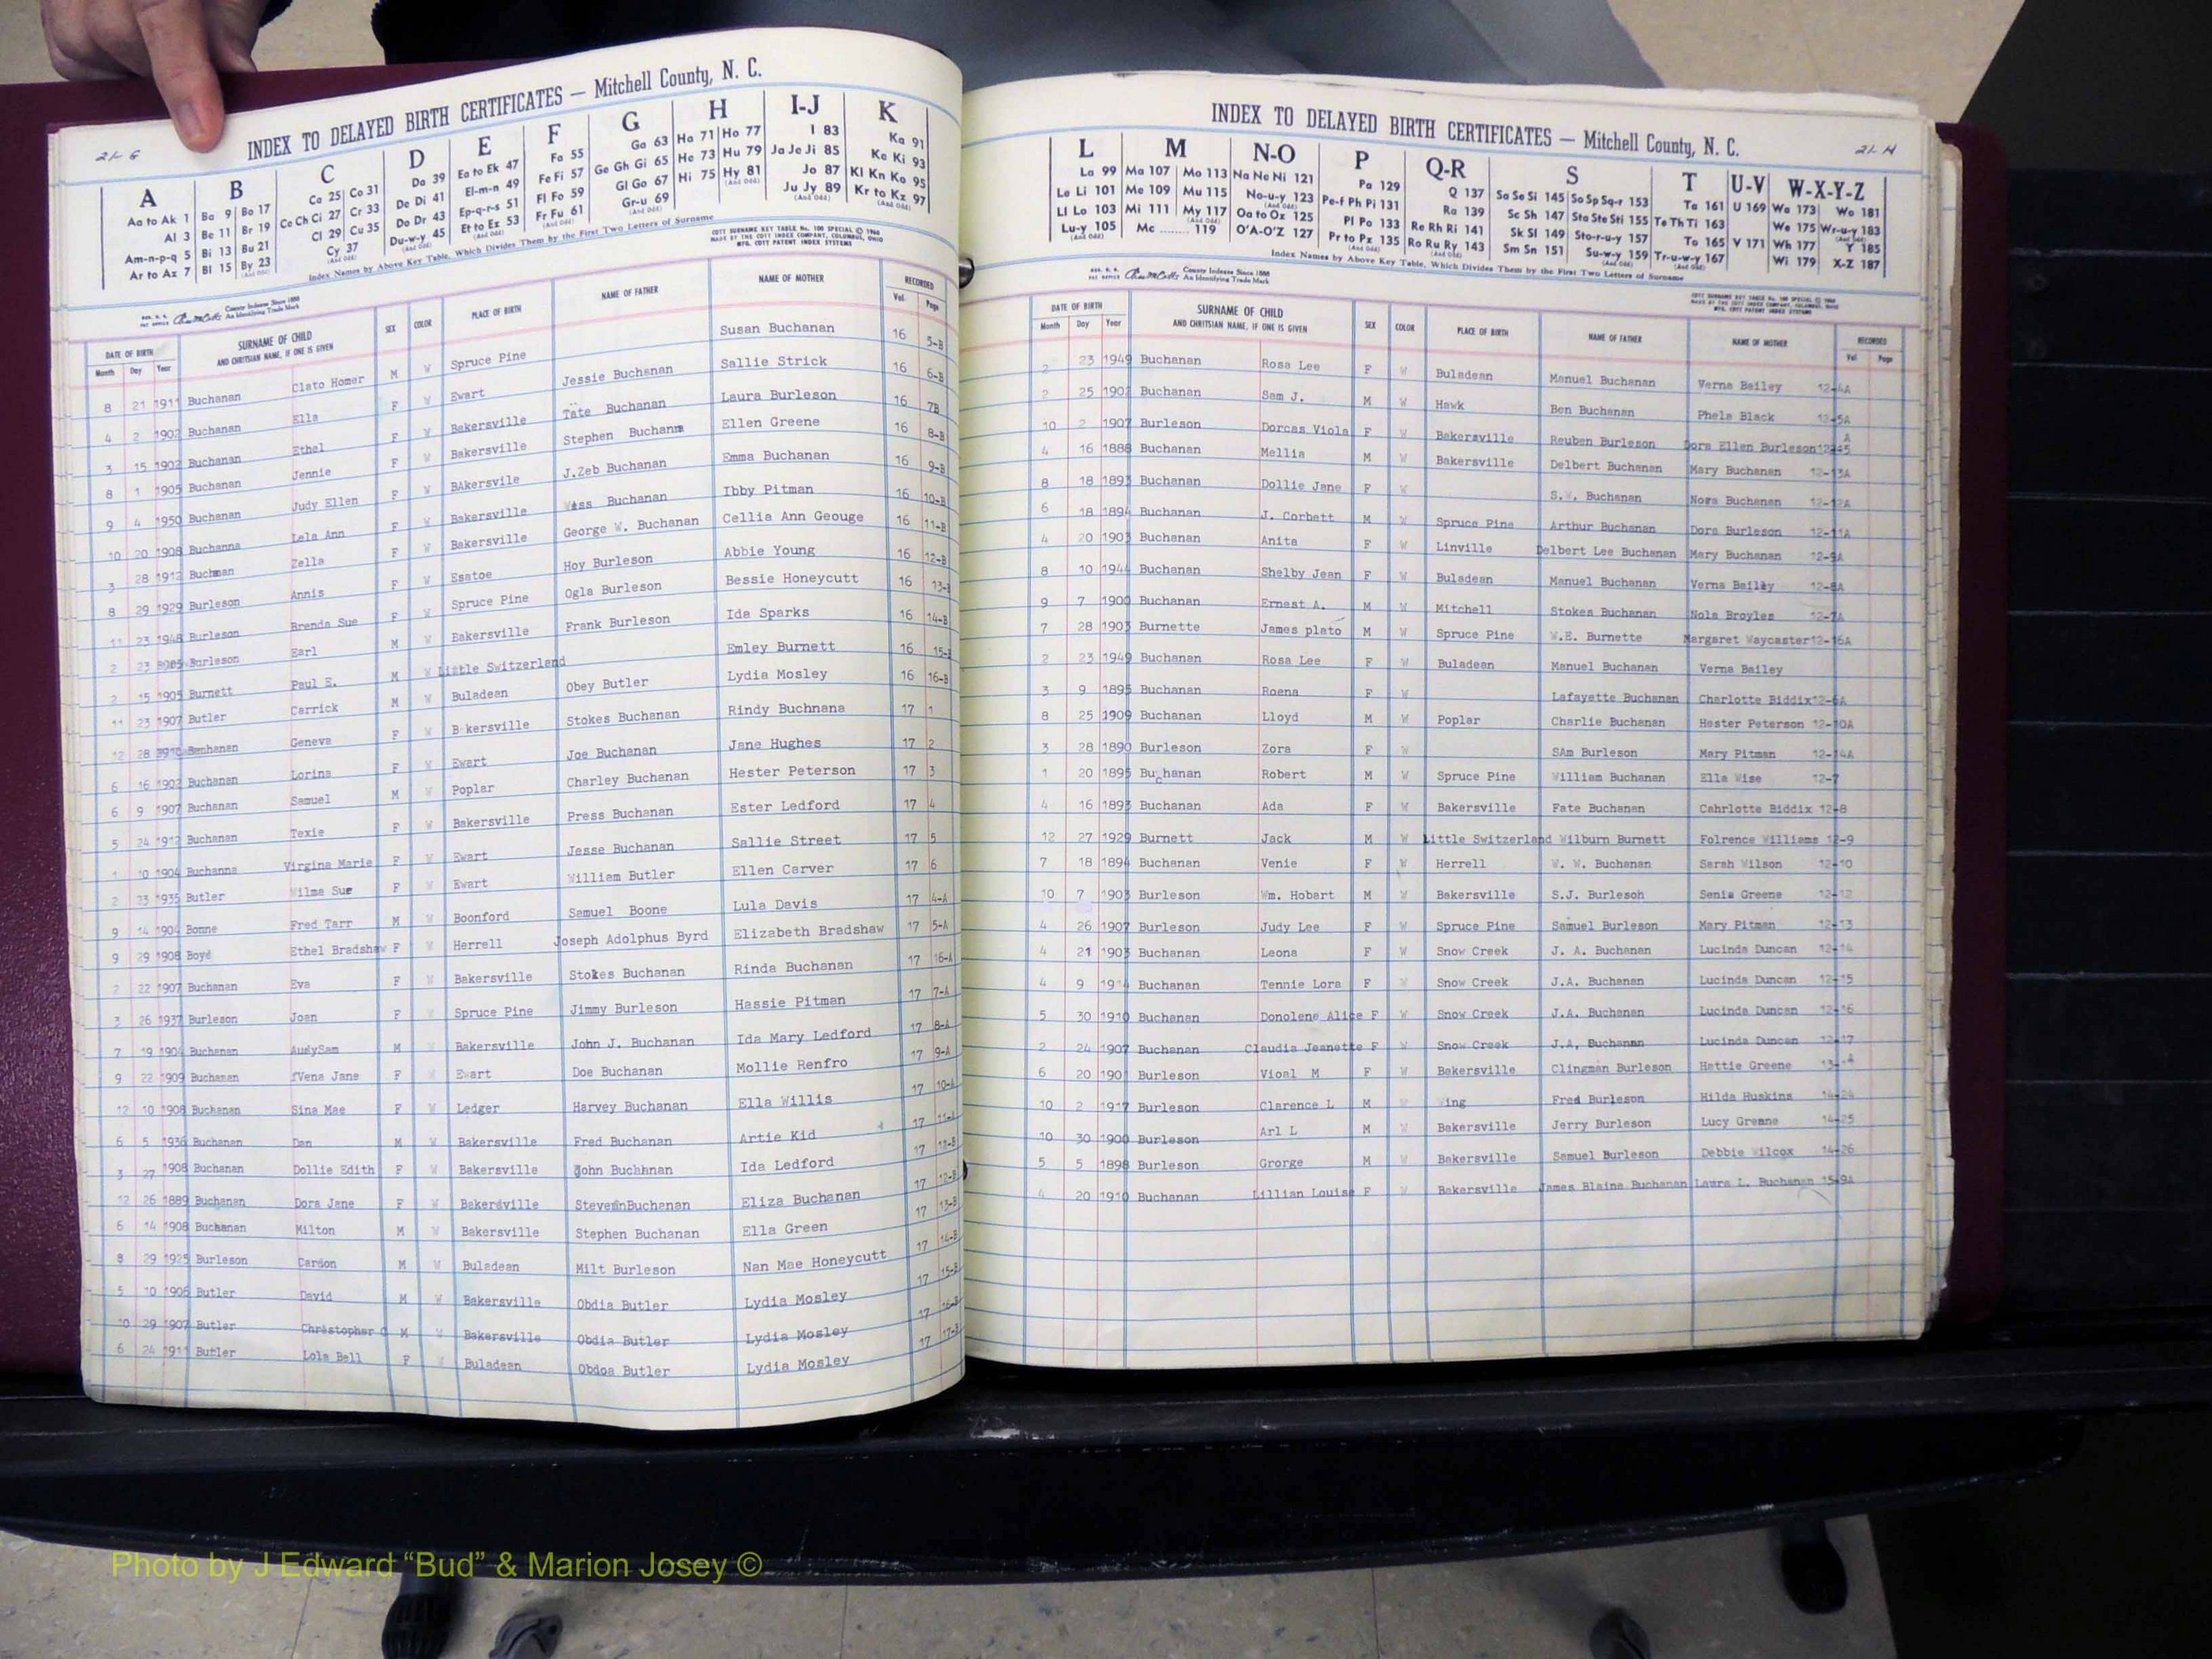 21-G
INDEX TO DELAYED BIRTH CERTIFICATES — Mitchell County, N. C.
A B C D E F G H I-J K
Aa to Ak 1 Ba 9 Bo 17 Ca 25 Co 31 Da 39 Ea to Ek 47 Fa 55 Ga 63 Ha 71 Ho 77 I 83 Ka 91
Al 3 Be 11 Br 19 Ce Ch Ci 27 Cr 33 De Di 41 El-m-n 49 Fe Fi 57 Ge Gh Gi 65 He 73 Hu 79 Ja Je Ji 85 Ke Ki 93
Am-n-p-q 5 Bi 13 Bu 21 Cl 29 Cu 35 Do Dr 43 Ep-q-r-s 51 Fl Fo 59 Gl Go 67 Hi 75 Hy 81 Jo 87 Kl Kn Ko 95
Ar to Az 7 Bl 15 By 23 Cy 37 Du-w-y 45 Et to Ez 53 Fr Fu 61 Gr-u 69 Ju Jy 89 Kr to Kz 97
Index Names by Above Key Table, Which Divides Them by the First Two Letters of Surname
COTT SURNAME KEY TABLE No. 100 SPECIAL © 1960
MADE BY THE COTT INDEX COMPANY, COLUMBUS, OHIO
MFG. COTT PATENT INDEX SYSTEMS
County Indexes Since 1888
An Identifying Trade Mark
DATE OF BIRTH SURNAME OF CHILD SEX COLOR PLACE OF BIRTH NAME OF FATHER NAME OF MOTHER RECORDED
Month Day Year AND CHRITSIAN NAME, IF ONE IS GIVEN Vol. Page
8 21 1911 Buchanan Clato Homer M W Spruce Pine Susan Buchanan 16 5-B
4 2 1902 Buchanan Ella F W Ewart Jessie Buchanan Sallie Strick 16 6-B
3 15 1902 Buchanan Ethel F W Bakersville Tate Buchanan Laura Burleson 16 7B
8 1 1905 Buchanan Jennie F W Bakersville Stephen Buchanm Ellen Greene 16 8-B
9 4 1950 Buchanan Judy Ellen F W BAkersvile J.Zeb Buchanan Emma Buchanan 16 9-B
10 20 1908 Buchanna Lela Ann F W Bakersville Wess Buchanan Ibby Pitman 16 10-B
3 28 1912 Buchman Zella F W Bakersville George W. Buchanan Cellia Ann Geouge 16 11-B
8 29 1929 Burleson Annis F W Esatoe Hoy Burleson Abbie Young 16 12-B
11 23 1948 Burleson Brenda Sue F W Spruce Pine Ogla Burleson Bessie Honeycutt 16 13-B
2 23 Burleson Earl M W Bakersville Frank Burleson Ida Sparks 16 14-B
2 15 1905 Burnett Paul E. M W Little Switzerland Emley Burnett 16 15-B
11 23 1907 Butler Carrick M W Buladean Obey Butler Lydia Mosley 16 16-B
12 28 Geneva F W B kersville Stokes Buchanan Rindy Buchnana 17 1
6 16 1902 Buchanan Lorina F W Ewart Joe Buchanan Jane Hughes 17 2
6 9 1907 Buchanan Samuel M W Poplar Charley Buchanan Hester Peterson 17 3
5 24 1912 Buchanan Texie F W Bakersville Press Buchanan Ester Ledford 17 4
1 10 1904 Buchanna Virgina Marie F W Ewart Jesse Buchanan Sallie Street 17 5
2 23 1935 Butler Wilma Sue F W Ewart William Butler Ellen Carver 17 6
9 14 1904 Bonne Fred Tarr M W Boonford Samuel Boone Lula Davis 17 4-A
9 29 1908 Boyd Ethel Bradshaw F W Herrell Joseph Adolphus Byrd Elizabeth Bradshaw 17 5-A
2 22 1907 Buchanan Eva F W Bakersville Stokes Buchanan Rinda Buchanan 17 16-A
3 26 1937 Burleson Joan F W Spruce Pine Jimmy Burleson Hassie Pitman 17 7-A
7 19 1904 Buchanan AudySam M W Bakersville John J. Buchanan Ida Mary Ledford 17 8-A
9 22 1909 Buchanan Vena Jane F W Ewart Doe Buchanan Mollie Renfro 17 9-A
12 10 1908 Buchanan Sina Mae F W Ledger Harvey Buchanan Ella Willis 17 10-A
6 5 1936 Buchanan Dan M W Bakersville Fred Buchanan Artie Kid 17 11-A
3 27 1908 Buchanan Dollie Edith F W Bakersville John Buchhnan Ida Ledford 17 12-B
12 26 1889 Buchanan Dora Jane F W Bakersville Buchanan Eliza Buchanan 17 12-B
6 14 1908 Buchanan Milton M W Bakersville Stephen Buchanan Ella Green 17 13-B
8 29 1925 Burleson Cardon M W Buladean Milt Burleson Nan Mae Honeycutt 17 14-B
5 10 1906 Butler David M W Bakersville Obdia Butler Lydia Mosley 17 15-B
10 29 1907 Butler Christopher C M W Bakersville Obdia Butler Lydia Mosley 17 16-B
6 24 1911 Butler Lola Bell F W Buladean Obdoa Butler Lydia Mosley 17 17-B
21-H
INDEX TO DELAYED BIRTH CERTIFICATES — Mitchell County, N. C.
L M N-O P Q-R S T U-V W-X-Y-Z
La 99 Ma 107 Mo 113 Na Ne Ni 121 Pa 129 Q 137 Sa Se Si 145 So Sp Sq-r 153 Ta 161 U 169 Wa 173 Wo 181
Le Li 101 Me 109 Mu 115 No-u-y 123 Pe-f Ph Pi 131 Ra 139 Sc Sh 147 Sta Ste Sti 155 Te Th Ti 163 We 175 Wr-u-y 183
Ll Lo 103 Mi 111 My 117 Oa to Ox 125 Pl Po 133 Re Rh Ri 141 Sk Sl 149 Sto-r-u-y 157 To 165 V 171 Wh 177 Y 185
Lu-y 105 Mc ........ 119 O'A-O'Z 127 Pr to Pz 135 Ro Ru Ry 143 Sm Sn 151 Su-w-y 159 Tr-u-w-y 167 Wi 179 X-Z 187
Index Names by Above Key Table, Which Divides Them by the First Two Letters of Surname
County Indexes Since 1888
An Identifying Trade Mark
COTT SURNAME KEY TABLE No. 100 SPECIAL © 1960
MADE BY THE COTT INDEX COMPANY, COLUMBUS, OHIO
MFG. COTT PATENT INDEX SYSTEMS
DATE OF BIRTH SURNAME OF CHILD SEX COLOR PLACE OF BIRTH NAME OF FATHER NAME OF MOTHER RECORDED
Month Day Year AND CHRITSIAN NAME, IF ONE IS GIVEN Vol Page
2 23 1949 Buchanan Rosa Lee F W Buladean Manuel Buchanan Verna Bailey 12-4A
2 25 1902 Buchanan Sam J. M W Hawk Ben Buchanan Phela Black 12-5A
10 2 1907 Burleson Dorcas Viola F W Bakersville Reuben Burleson Dora Ellen Burleson
4 16 1888 Buchanan Mellia M W Bakersville Delbert Buchanan Mary Buchanan 12-13A
8 18 1893 Buchanan Dollie Jane F W S.W. Buchanan Nora Buchanan 12-12A
6 18 1894 Buchanan J. Corbett M W Spruce Pine Arthur Buchanan Dora Burleson 12-11A
4 20 1903 Buchanan Anita F W Linville Delbert Lee Buchanan Mary Buchanan 12-9A
8 10 1944 Buchanan Shelby Jean F W Buladean Manuel Buchanan Verna Bailey 12-8A
9 7 1900 Buchanan Ernest A. M W Mitchell Stokes Buchanan Nola Broyles 12-7A
7 28 1903 Burnette James plato M W Spruce Pine W.E. Burnette Margaret Waycaster 12-16A
2 23 1949 Buchanan Rosa Lee F W Buladean Manuel Buchanan Verna Bailey
3 9 1895 Buchanan Roena F W Lafayette Buchanan Charlotte Biddix 12-6A
8 25 1909 Buchanan Lloyd M W Poplar Charlie Buchanan Hester Peterson 12-10A
3 28 1890 Burleson Zora F W SAm Burleson Mary Pitman 12-14A
1 20 1895 Buchanan Robert M W Spruce Pine William Buchanan Ella Wise 12-7
4 16 1893 Buchanan Ada F W Bakersville Fate Buchanan Cahrlotte Biddix 12-8
12 27 1929 Burnett Jack M W Little Switzerland Wilburn Burnett Folrence Williams 12-9
7 18 1894 Buchanan Venie F W Herrell W. W. Buchanan Sarah Wilson 12-10
10 7 1903 Burleson Wm. Hobart M W Bakersville S.J. Burlesoh Senia Greene 12-12
4 26 1907 Burleson Judy Lee F W Spruce Pine Samuel Burleson Mary Pitman 12-13
4 21 1903 Buchanan Leona F W Snow Creek J. A. Buchanan Lucinda Duncan 12-14
4 9 1914 Buchanan Tennie Lora F W Snow Creek J.A. Buchanan Lucinda Duncan 12-15
5 30 1910 Buchanan Donolene Alice F W Snow Creek J.A. Buchanan Lucinda Duncan 12-16
2 24 1907 Buchanan Claudia Jeanette F W Snow Creek J.A, Buchanan Lucinda Duncan 12-17
6 20 190 Burleson Vioal M F W Bakersville Clingman Burleson Hattie Greene
10 2 1917 Burleson Clarence L M W Wing Fred Burleson Hilda Huskins 14-24
10 30 1900 Burleson Arl L M W Bakersville Jerry Burleson Lucy Greene 14-25
5 5 1898 Burleson Grorge M W Bakersville Samuel Burleson Debbie Wilcox 14-26
4 20 1910 Buchanan Lillian Louise F W Bakersville James Blaine Buchanan Laura L. Buchanan 15-9A
Photo by J Edward “Bud” & Marion Josey ©